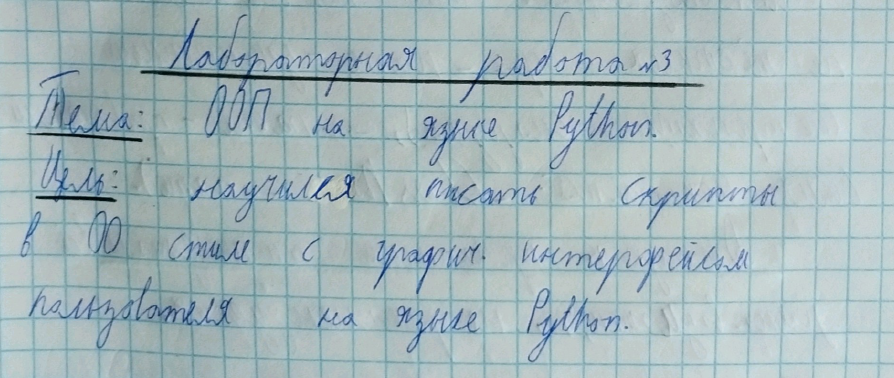 Лабораторная работа №3
Тема: ООП на языке Python.
Цель: научился писать скрипты
в ОО стиле с графич. интерфейсом
пользователя на языке Python.